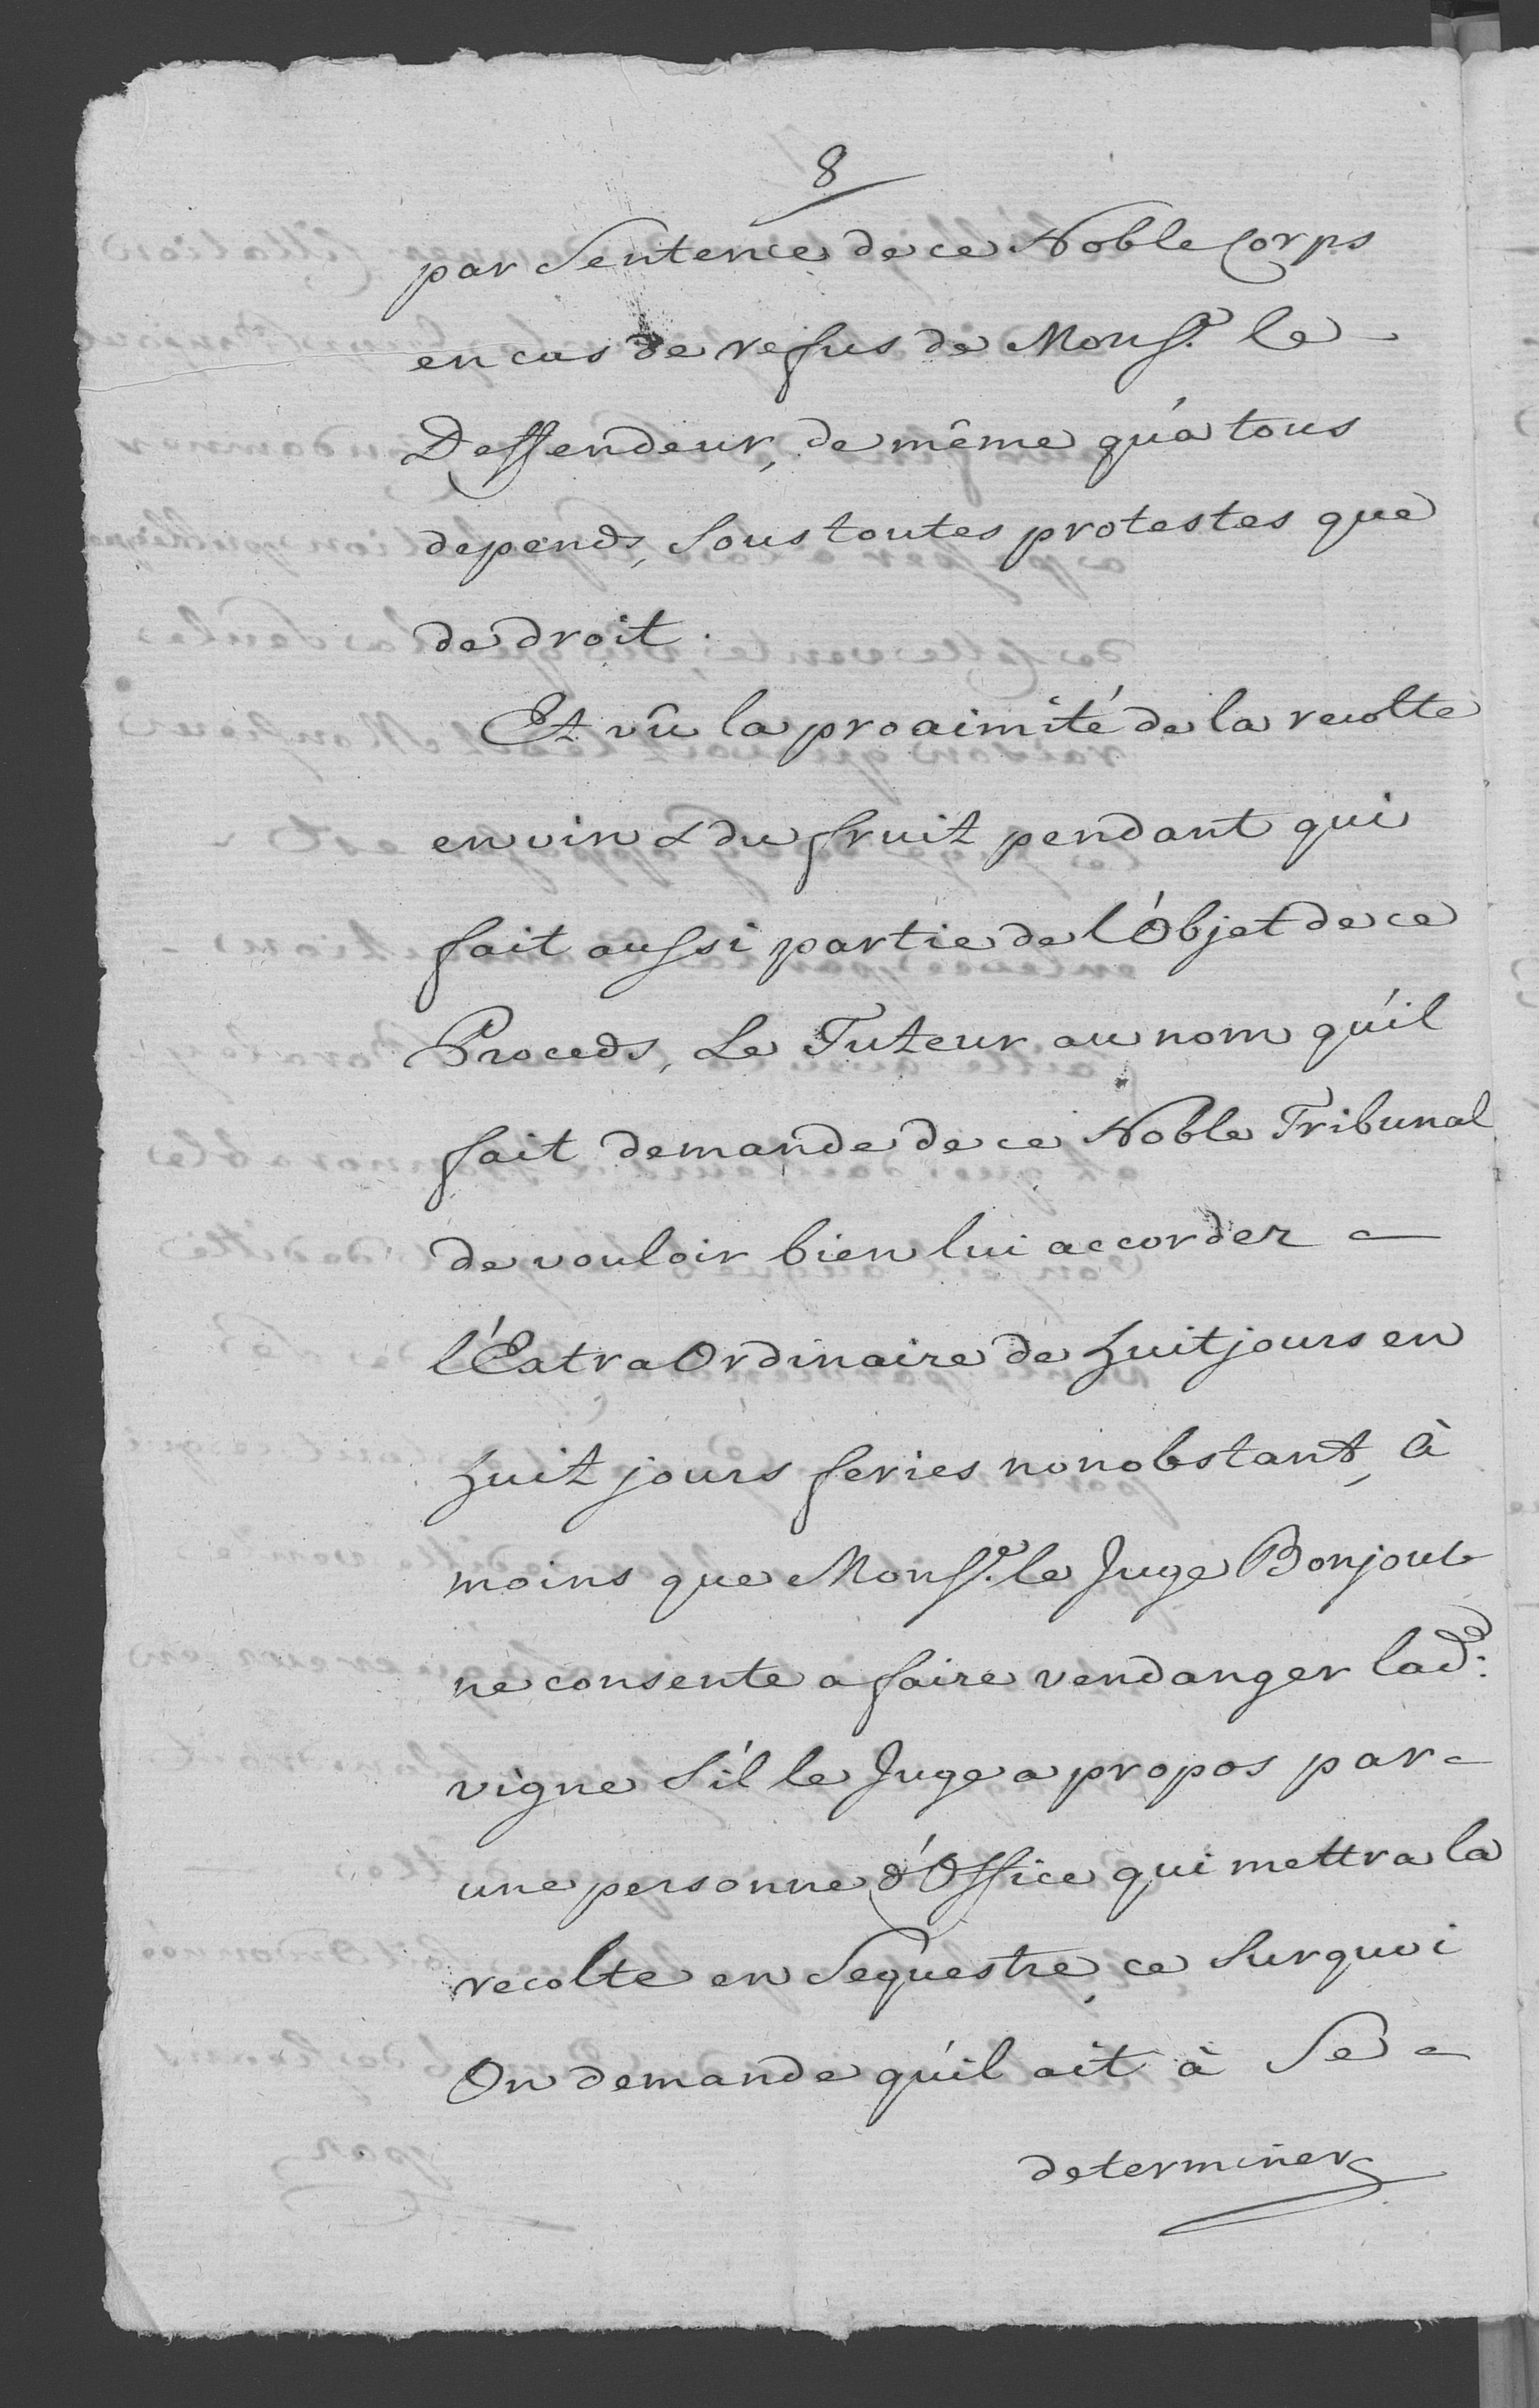 8
par Sentence de ce Noble Corps
en cas de refus de Monsr. le
Deffendeur, de même qu'à tous
depends, Sous toutes protestes que
de droit.
Et vû la proximité de la recolte
en vin & du fruit pendant qui
fait aussi partie de l'Objet de ce
Proceds, Le Tuteur au nom qu'il
fait demande de ce Noble Tribunal
de vouloir bien lui accorder
l'Extra Ordinaire de huit jours en
huit jours feries nonobstant, à
moins que Monsr. le Juge Bonjour
ne consente a faire vendanger lade:
vigne S'il le Juge a propos par
une personne d'Office qui mettra la
recolte en Sequestre, ce Surquoi
On demande qu'il ait à Se
determiner